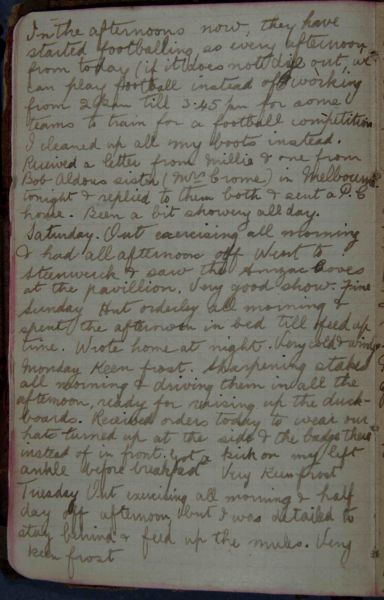 In the afternoons now, they have
started footballing, so every afternoon
from today (if it does not die out, we
can play football instead of working
from 2 pm till 3.45 pm for some
teams to train for a football competition
I cleaned up all my boots instead.
Received a letter from Millie & one from
Bob Aldous sister (Mrs Crome) in Melbourne
tonight & replied to them both & sent a P.C
home. Been a bit showery all day.
Saturday. Out exercising all morning
& had all afternoon off Went to
Steenwerck & saw the Anzac Coves
at the pavillion. Very good show. Fine
Sunday Hut orderley all morning &
spent the afternoon in bed till feed up
time. Wrote home at night. Very cold & windy
Monday Keen frost. Sharpening stakes
all morning & driving them in all the
afternoon, ready for raising up the duck-
boards. Received orders today to wear our
hats turned up at the side & the badge there
instead of in front. Got a kick on my left
ankle before breakfast Very Keen frost
Tuesday Out exercising all morning & half
day off afternoon but I was detailed to
stay behind & feed up the mules. Very
keen frost